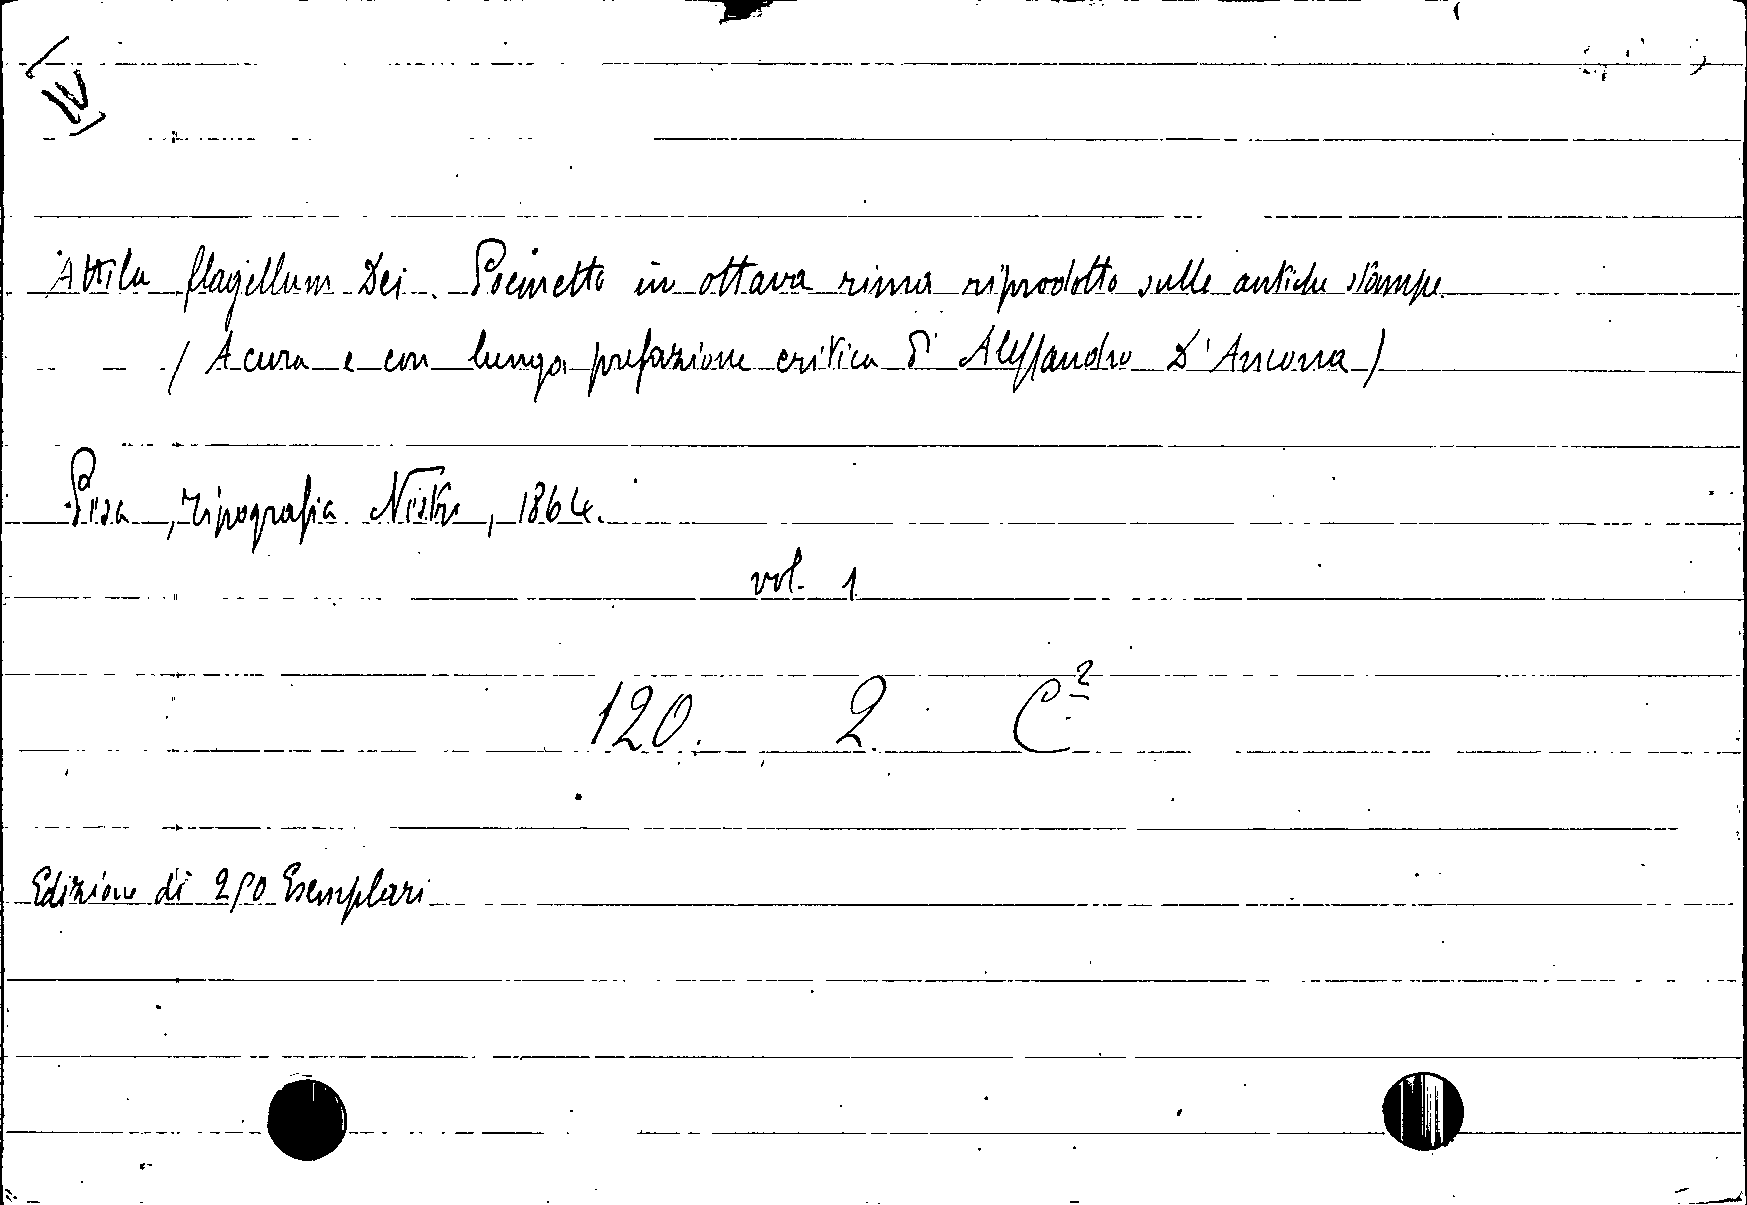 IV
Attila flagellum Dei. Poemetto in ottava rima riprodotto sulle antiche stampe
(A cura e con lunga prefazione critica di Alessandro D'Ancona)
Pisa, Tipografia Nistri, 1864.
vol. 1
120. 2 C²
Edizione di 250 Esemplari